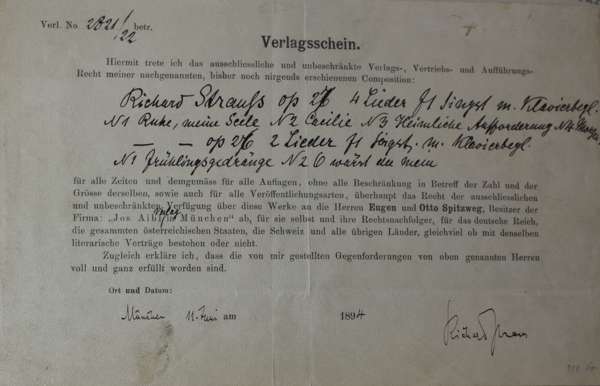 Verl. No. 2821/22 betr.
Verlagsschein.
Hiermit trete ich das ausschliessliche und unbeschränkte Verlags-, Vertriebs- und Aufführungs-
Recht meiner nachgenannten, bisher noch nirgends erschienenen Composition:
Richard Strauss op 27 4 Lieder f 1 Singst m. Klavierbegl.
N1 Ruhe, meine Seele N2 Cäcilie N3 Heimliche Aufforderung N4
— — op 26 2 Lieder f 1 Singst. m. Klavierbegl
N1 Frühlingsgedränge N2 O wärst du mein
für alle Zeiten und demgemäss für alle Auflagen, ohne alle Beschränkung in Betreff der Zahl und der
Grösse derselben, sowie auch für alle Veröffentlichungsarten, überhaupt das Recht der ausschliesslichen
und unbeschränkten Verfügung über diese Werke an die Herren Eugen und Otto Spitzweg, Besitzer der
Firma: „Jos Aibl München" ab, für sie selbst und ihre Rechtsnachfolger, für das deutsche Reich,
die gesammten österreichischen Staaten, die Schweiz und alle übrigen Länder, gleichviel ob mit denselben
literarische Verträge bestehen oder nicht.
Zugleich erkläre ich, dass die von mir gestellten Gegenforderungen von oben genannten Herren
voll und ganz erfüllt worden sind.
Ort und Datum:
München 11. Juni am 1894
Richard Strauss